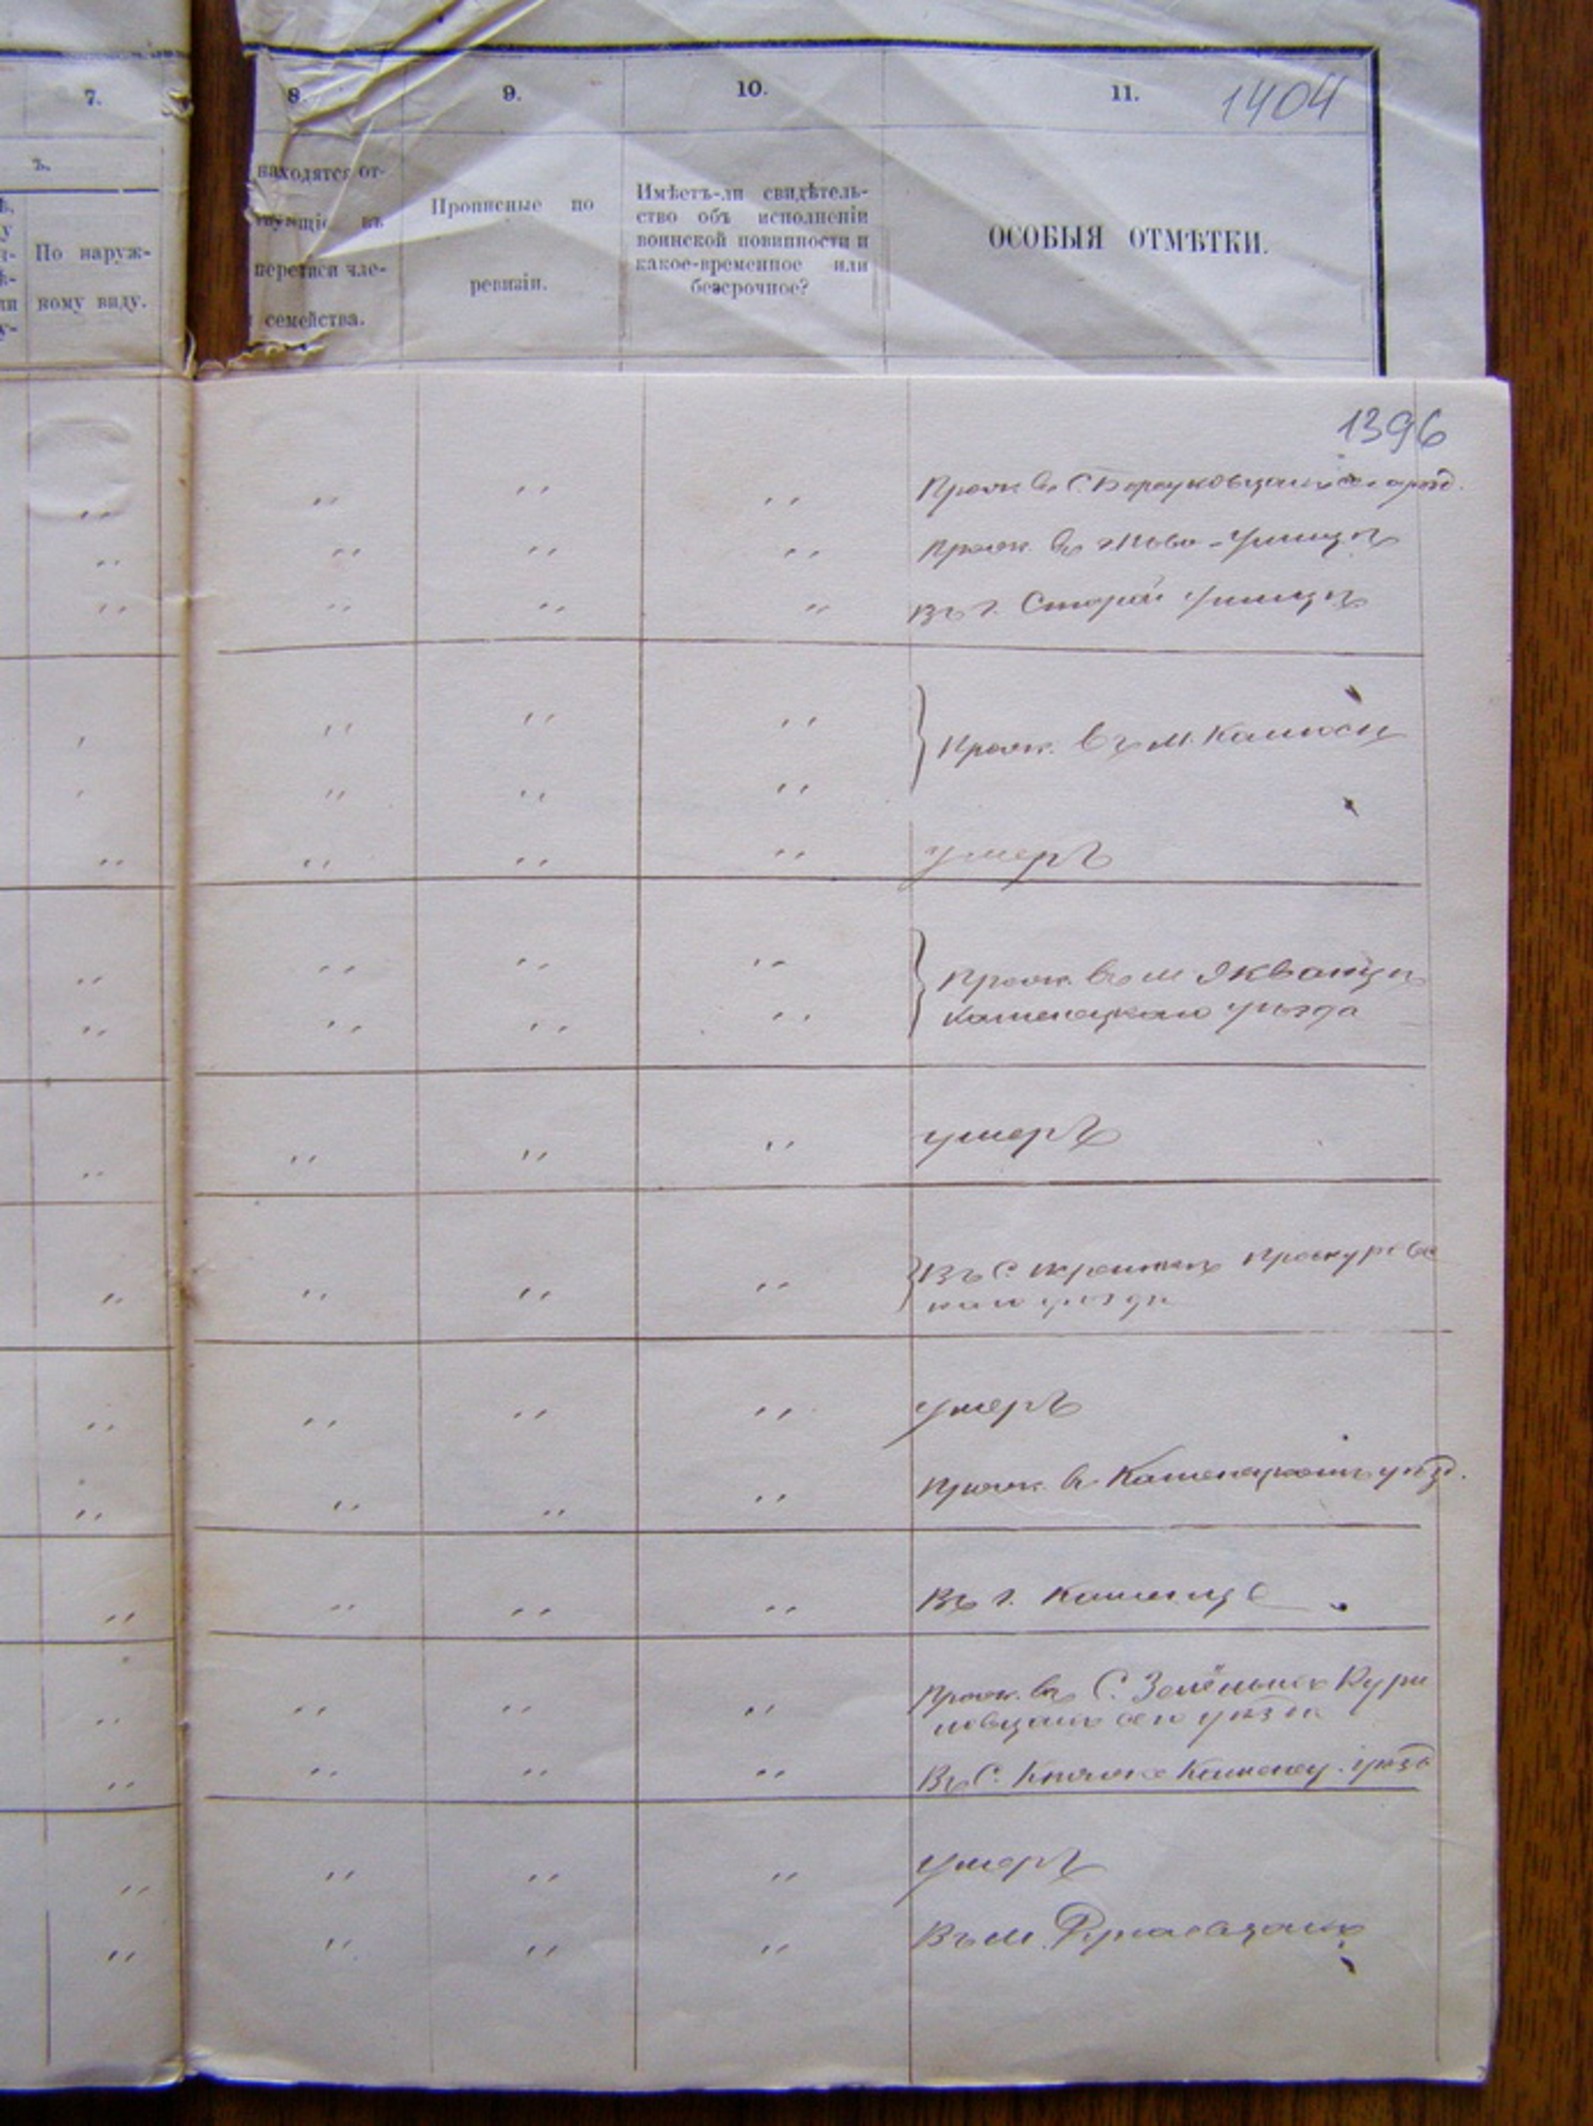 7.
8.
9.
10.
11.
1404
ъ.
По наруж-
ному виду.
находятся от-
перетиси чле-
семейства.
Прописные по
ревизіи.
Имѣетъ-ли свидѣтель-
ство объ исполненіи
воинской повинности и
какое-временное или
безсрочное?
ОСОБЫЯ ОТМѢТКИ.
1396
Прож. въ С.
Прож. въ г. Ново-Ушицѣ
Въ г. Старой Ушицѣ
Прож. въ м.
умеръ
Прож. въ м
Каменецкаго уѣзда
умеръ
Въ С. Проскуровс
каго уѣзда
умеръ
Прож. въ Каменецкомъ уѣзд.
Въ г. Каменце
Прож. въ С. Зелёныхъ Кури
ловцахъ уѣзда
Въ С. Каменец. уѣзд
умеръ
Въ м.